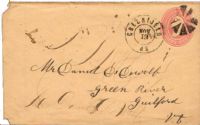 GREENFIELD
NOV
19
MS
Mr Daniel DeWolf
Green River
Guilford
Vt